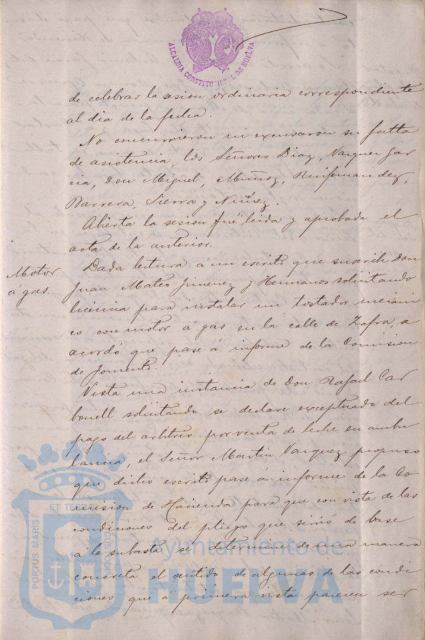 ALCALDIA CONSTITUCIONAL DE HUELVA
de celebrar la sesion ordinaria correspondiente
al dia de la fecha.
No concurrieron ni excusaron su falta
de asistencia, los Señores Diaz, Vazquez Gar
cia, Don Miguel, Muñoz, Hernandez,
Barrera, Sierra y Nuñez.
Abierta la sesion fué leida y aprobada el
acta de la anterior.
Motor
a gas.
Dada lectura á un escrito que suscribe Don
Juan Mateo Jimenez y Hermanos solicitando
licencia para instalar un tostador mecani
co con motor á gas en la calle de Zafra, se
acordó que pase á informe de la Comision
de fomento.
Vista una instancia de Don Rafael Car
bonell solicitando se declare exceptuado del
pago del arbitrio por venta de leche en ambu
lancia, el Señor Martin Vazquez propuso
que dicho escrito pase á informe de la Co
mision de Hacienda para que con vista de las
condiciones del pliego que sirvió de base
a la subasta se determine de una manera
concreta el sentido de algunas de las condi
ciones que á primera vista parecen ser
PORTUS MARIS
Ayuntamiento de
HUELVA